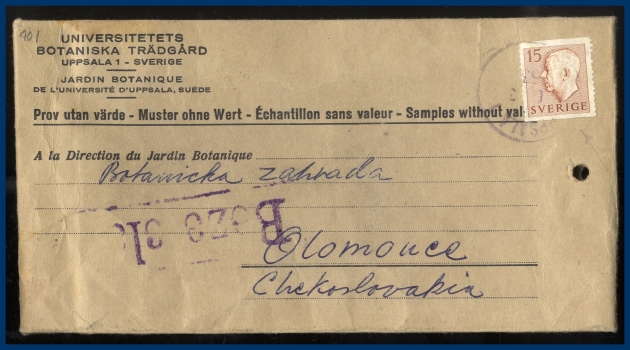 401
UNIVERSITETETS
BOTANISKA TRÄDGÅRD
UPPSALA 1 - SVERIGE
JARDIN BOTANIQUE
DE L'UNIVERSITÉ D'UPPSALA, SUÉDE
15
SVERIGE
Prov utan värde - Muster ohne Wert - Échantillon sans valeur - Samples without val
A la Direction du Jardin Botanique
Botanicka zahrada
Olomouce
Chekoslovakia